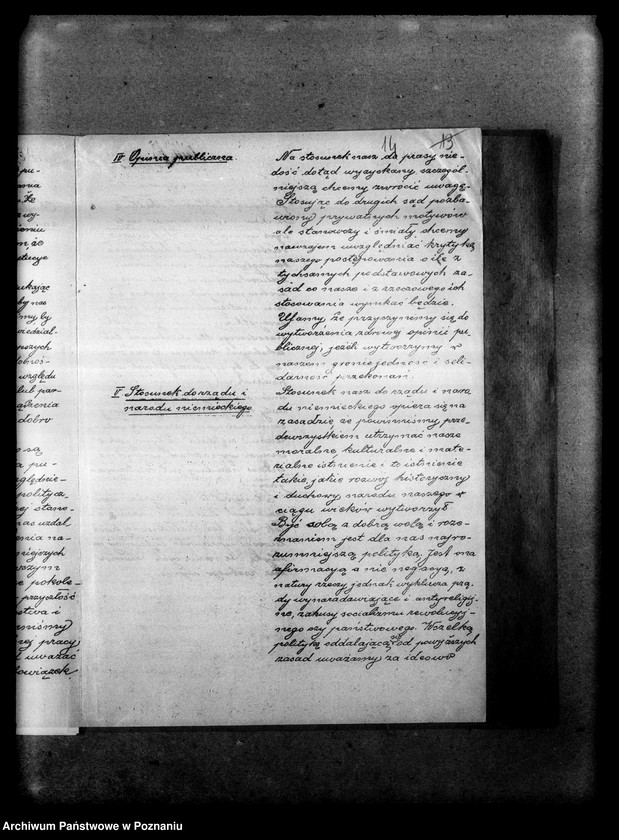 14 13
IV Opinia publiczna
Na stosunek nasz do prasy nie-
dość dotąd wyzyskany szczegól-
niejszą chcemy zwrócić uwagę.
Stosując do drugich sąd pozba-
wiony prywatnych motywów
ale stanowczy i śmiały chcemy
nawzajem uwzględniać krytykę
naszego postępowania o ile z
tychsamych podstawowych za-
sad co nasze i z rzeczowego ich
stosowania wynikać będzie.
Ufamy, że przyczynimy się do
wytworzenia zdrowej opinii pu-
blicznej, jeżeli wytworzymy w
naszem gronie jedność i soli-
darność przekonań.
V Stosunek do rządu i
narodu niemieckiego
Stosunek nasz do rządu i naro-
du niemieckiego opiera się na
zasadzie że powinniśmy prze-
dewszystkiem utrzymać nasze
moralne, kulturalne i mate-
rialne istnienie i to istnienie
takie, jakie rozwój historyczny
i duchowy narodu naszego w
ciągu wieków wytworzył
Być sobą z dobrą wolą i rozu-
mieniem jest dla nas najro-
zumniejszą polityką. Jest ona
afirmacyą a nie negacyą, z
natury rzeczy jednak wyklucza prą-
dy wynaradawiające i antyreligij-
ne, zakusy socializmu rewolucyj-
nego czy państwowego. Wszelką
politykę oddalającą się od powyższych
zasad uważamy za ideowo
pu-
że
wy-
m, że
ukając
by nas
lub par-
dobro
są
a pu-
zględnie-
politycz-
nej stano-
nas uzdal
enia na-
niejszych
e pokole-
przyszłość
stwa i
niśmy
nej pracy
uważać
bowiązek
Archiwum Państwowe w Poznaniu